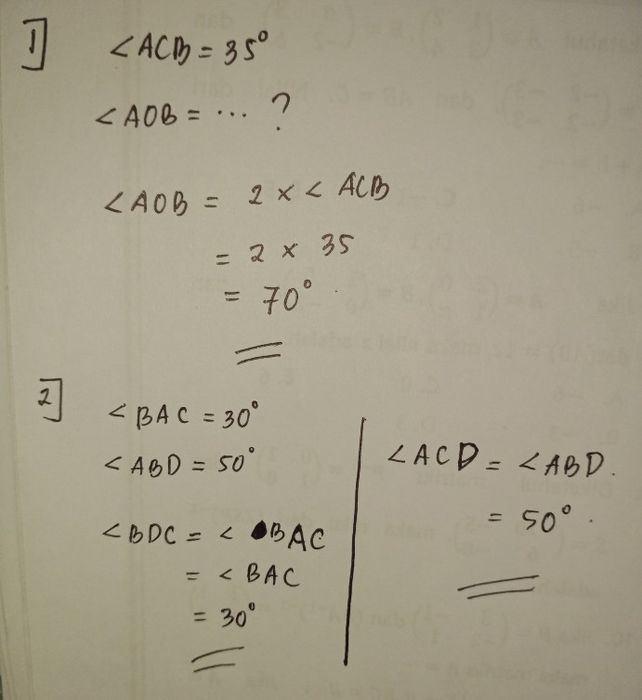 1]
∠ACB = 35°
∠AOB = ... ?
∠AOB = 2 × ∠ ACB
= 2 × 35
= 70°.
2]
∠BAC = 30°
∠ABD = 50°
∠BDC = ∠ BAC
= ∠BAC
= 30°
∠ACD = ∠ABD.
= 50°.